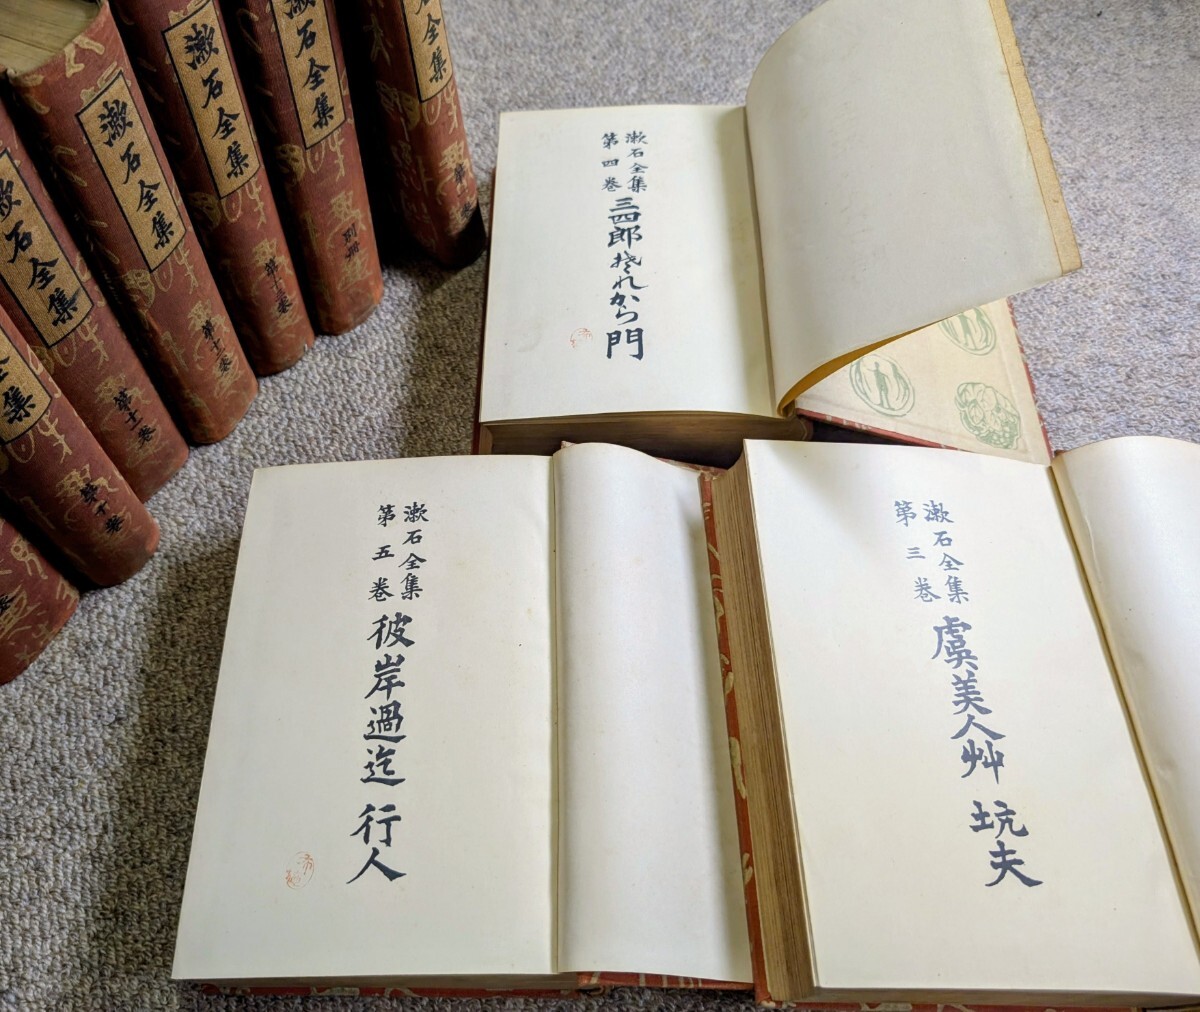 漱石全集
漱石全集
第十一卷
漱石全集
漱石全集
別冊
全集
第
全集
第十卷
石全集
第十二卷
漱石全集
第四卷
三四郎 それから 門
漱石全集
第五卷
彼岸過迄 行人
漱石全集
第三卷
虞美人艸 坑夫